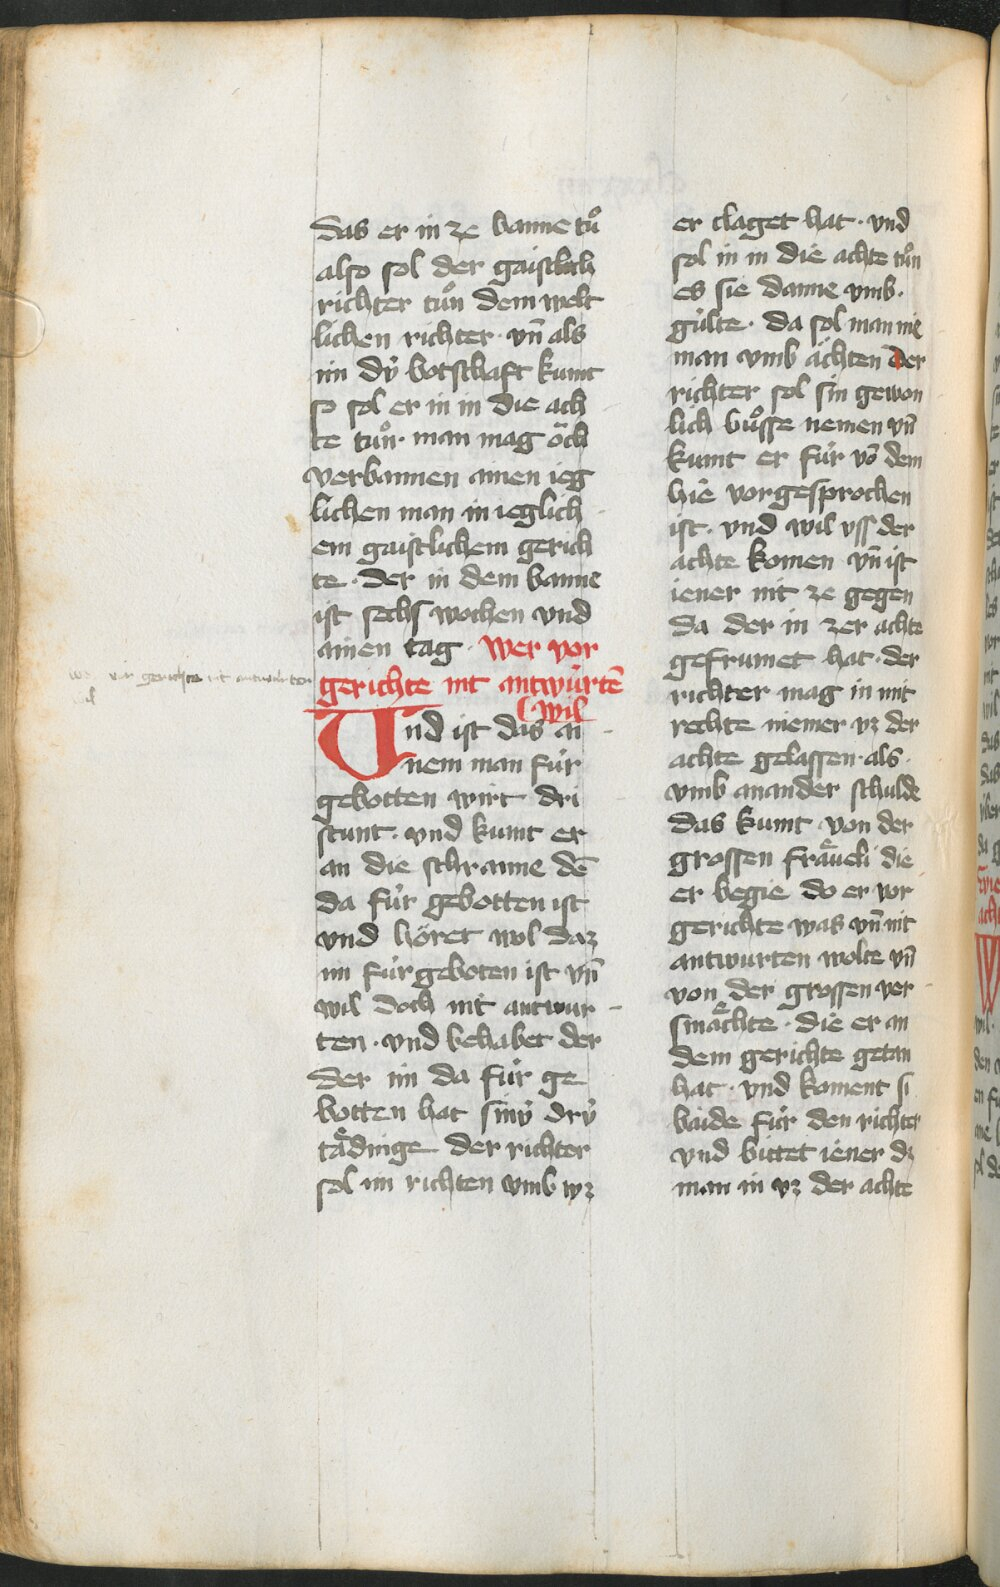 das er in ze banne tuͦ
also sol der gaistlich
richter tuͦn dem welt
lichen richter · vn̄ als
im dÿ botschaft kumt
so sol er in in die ach
te tuͦn · man mag oͮch
verbannen ainen ieg
lichen man in ieglich
em gaistlichem gerich
te · der in dem banne
ist sechs wochen vnd
ainen tag · wer vor
gerichte nit antwürtē
wil
wer vor gerichte nit antwurten
wil
Und ist das ai
nem man für
gebotten wirt dri
stunt · vnd kumt er
an die schranne dē
da für gebotten ist
vnd höret wol daz
im für geboten ist vn̄
wil doch nit antwur
ten · vnd behabet der
der im da für ge
botten hat sinÿ drÿ
taͤdinge der richter
sol im richten vmb wz
er claget hat · vnd
sol in in die achte tuͦn
es sie danne vmb ·
gülte · da sol man nie
man vmb ächten Der
richter sol sin gewon
lich buͦsse nemen vn̄
kumt er für vō dem
hie vorgesprochen
ist · vnd wil vss der
achte komen vn̄ ist
iener nit ze gegen
da der in zer achte
gefrumet hat · der
richter mag in mit
rechte niemer vz der
achte gelassen · als ·
vmb anander schulde
das kumt von der
grossen fraͤueli die
er begie do er vor
gerichte was vn̄ nit
antwurten wolte vn̄
von der grossen ver
smaͤchte · die er an
dem gerichte getan
hat · vnd koment si
baide für den richter
vnd bittet iener dz
man in vz der achte